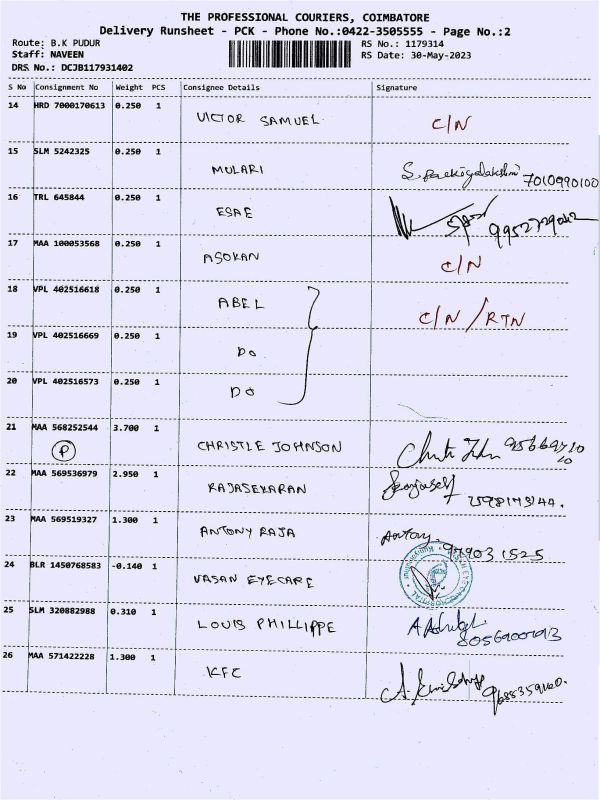 THE PROFESSIONAL COURIERS, COIMBATORE
Delivery Runsheet - PCK - Phone No.:0422-3505555 - Page No.:2
Route: B.K PUDUR RS No.: 1179314
Staff: NAVEEN RS Date: 30-May-2023
DRS No.: DCJB117931402
S No Consignment No Weight PCS Consignee Details Signature
14 HRD 7000170613 0.250 1 VICTOR SAMUEL C/N
15 SLM 5242325 0.250 1 MULARI 7010990100
16 TRL 645844 0.250 1 ESAE
17 MAA 100053568 0.250 1 ASOKAN C/N
18 VPL 402516618 0.250 1 ABEL C/N / RTN
19 VPL 402516669 0.250 1 DO
20 VPL 402516573 0.250 1 DO
21 MAA 568252544 3.700 1 CHRISTLE JOHNSON
P
22 MAA 569536979 2.950 1 RAJASEKARAN
23 MAA 569519327 1.300 1 ANTONY RAJA Antony. 979031525
24 BLR 1450768583 -0.140 1 VASAN EYECARE
25 SLM 320882988 0.310 1 LOUIS PHILLIPPE
26 MAA 571422228 1.300 1 KFC